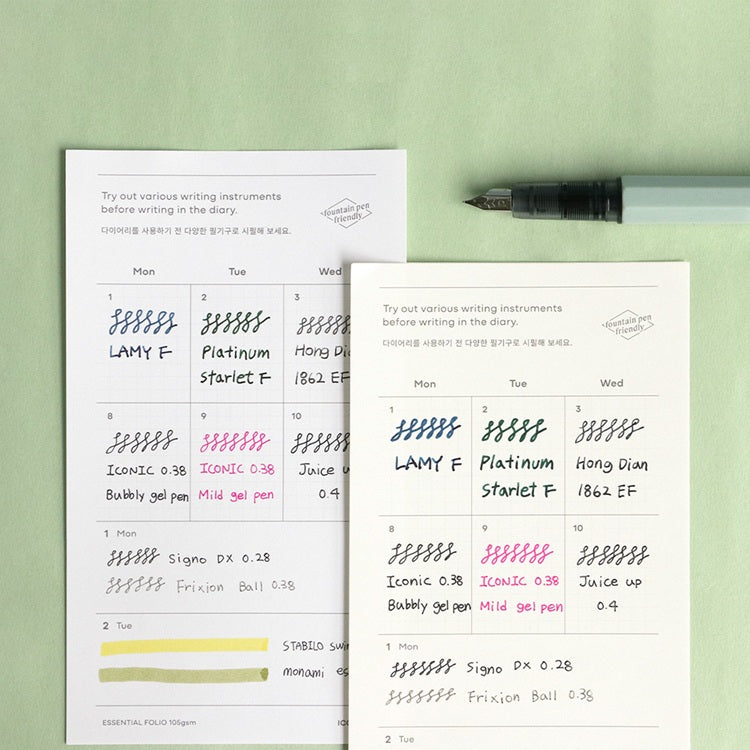 Try out various writing instruments
before writing in the diary.
다이어리를 사용하기 전 다양한 필기구로 시필해 보세요.
fountain pen
friendly
Mon Tue Wed
1 2 3
LAMY F
Platinum
Starlet F
Hong Di
1862 EF
8 9 10
ICONIC 0.38
Bubbly gel pen
ICONIC 0.38
Mild gel pen
Juice u
0.4
1 Mon
Signo DX 0.28
Frixion Ball 0.38
2 Tue
STABILO swin
monami es
ESSENTIAL FOLIO 105gsm
Try out various writing instruments
before writing in the diary.
다이어리를 사용하기 전 다양한 필기구로 시필해 보세요.
fountain pen
friendly
Mon Tue Wed
1 2 3
LAMY F
Platinum
Starlet F
Hong Dian
1862 EF
8 9 10
Iconic 0.38
Bubbly gel pen
ICONIC 0.38
Mild gel pen
Juice up
0.4
1 Mon
Signo DX 0.28
Frixion Ball 0.38
2 Tue